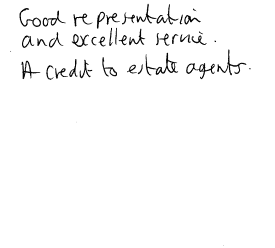 Good representation
and excellent service.
A credit to estate agents.